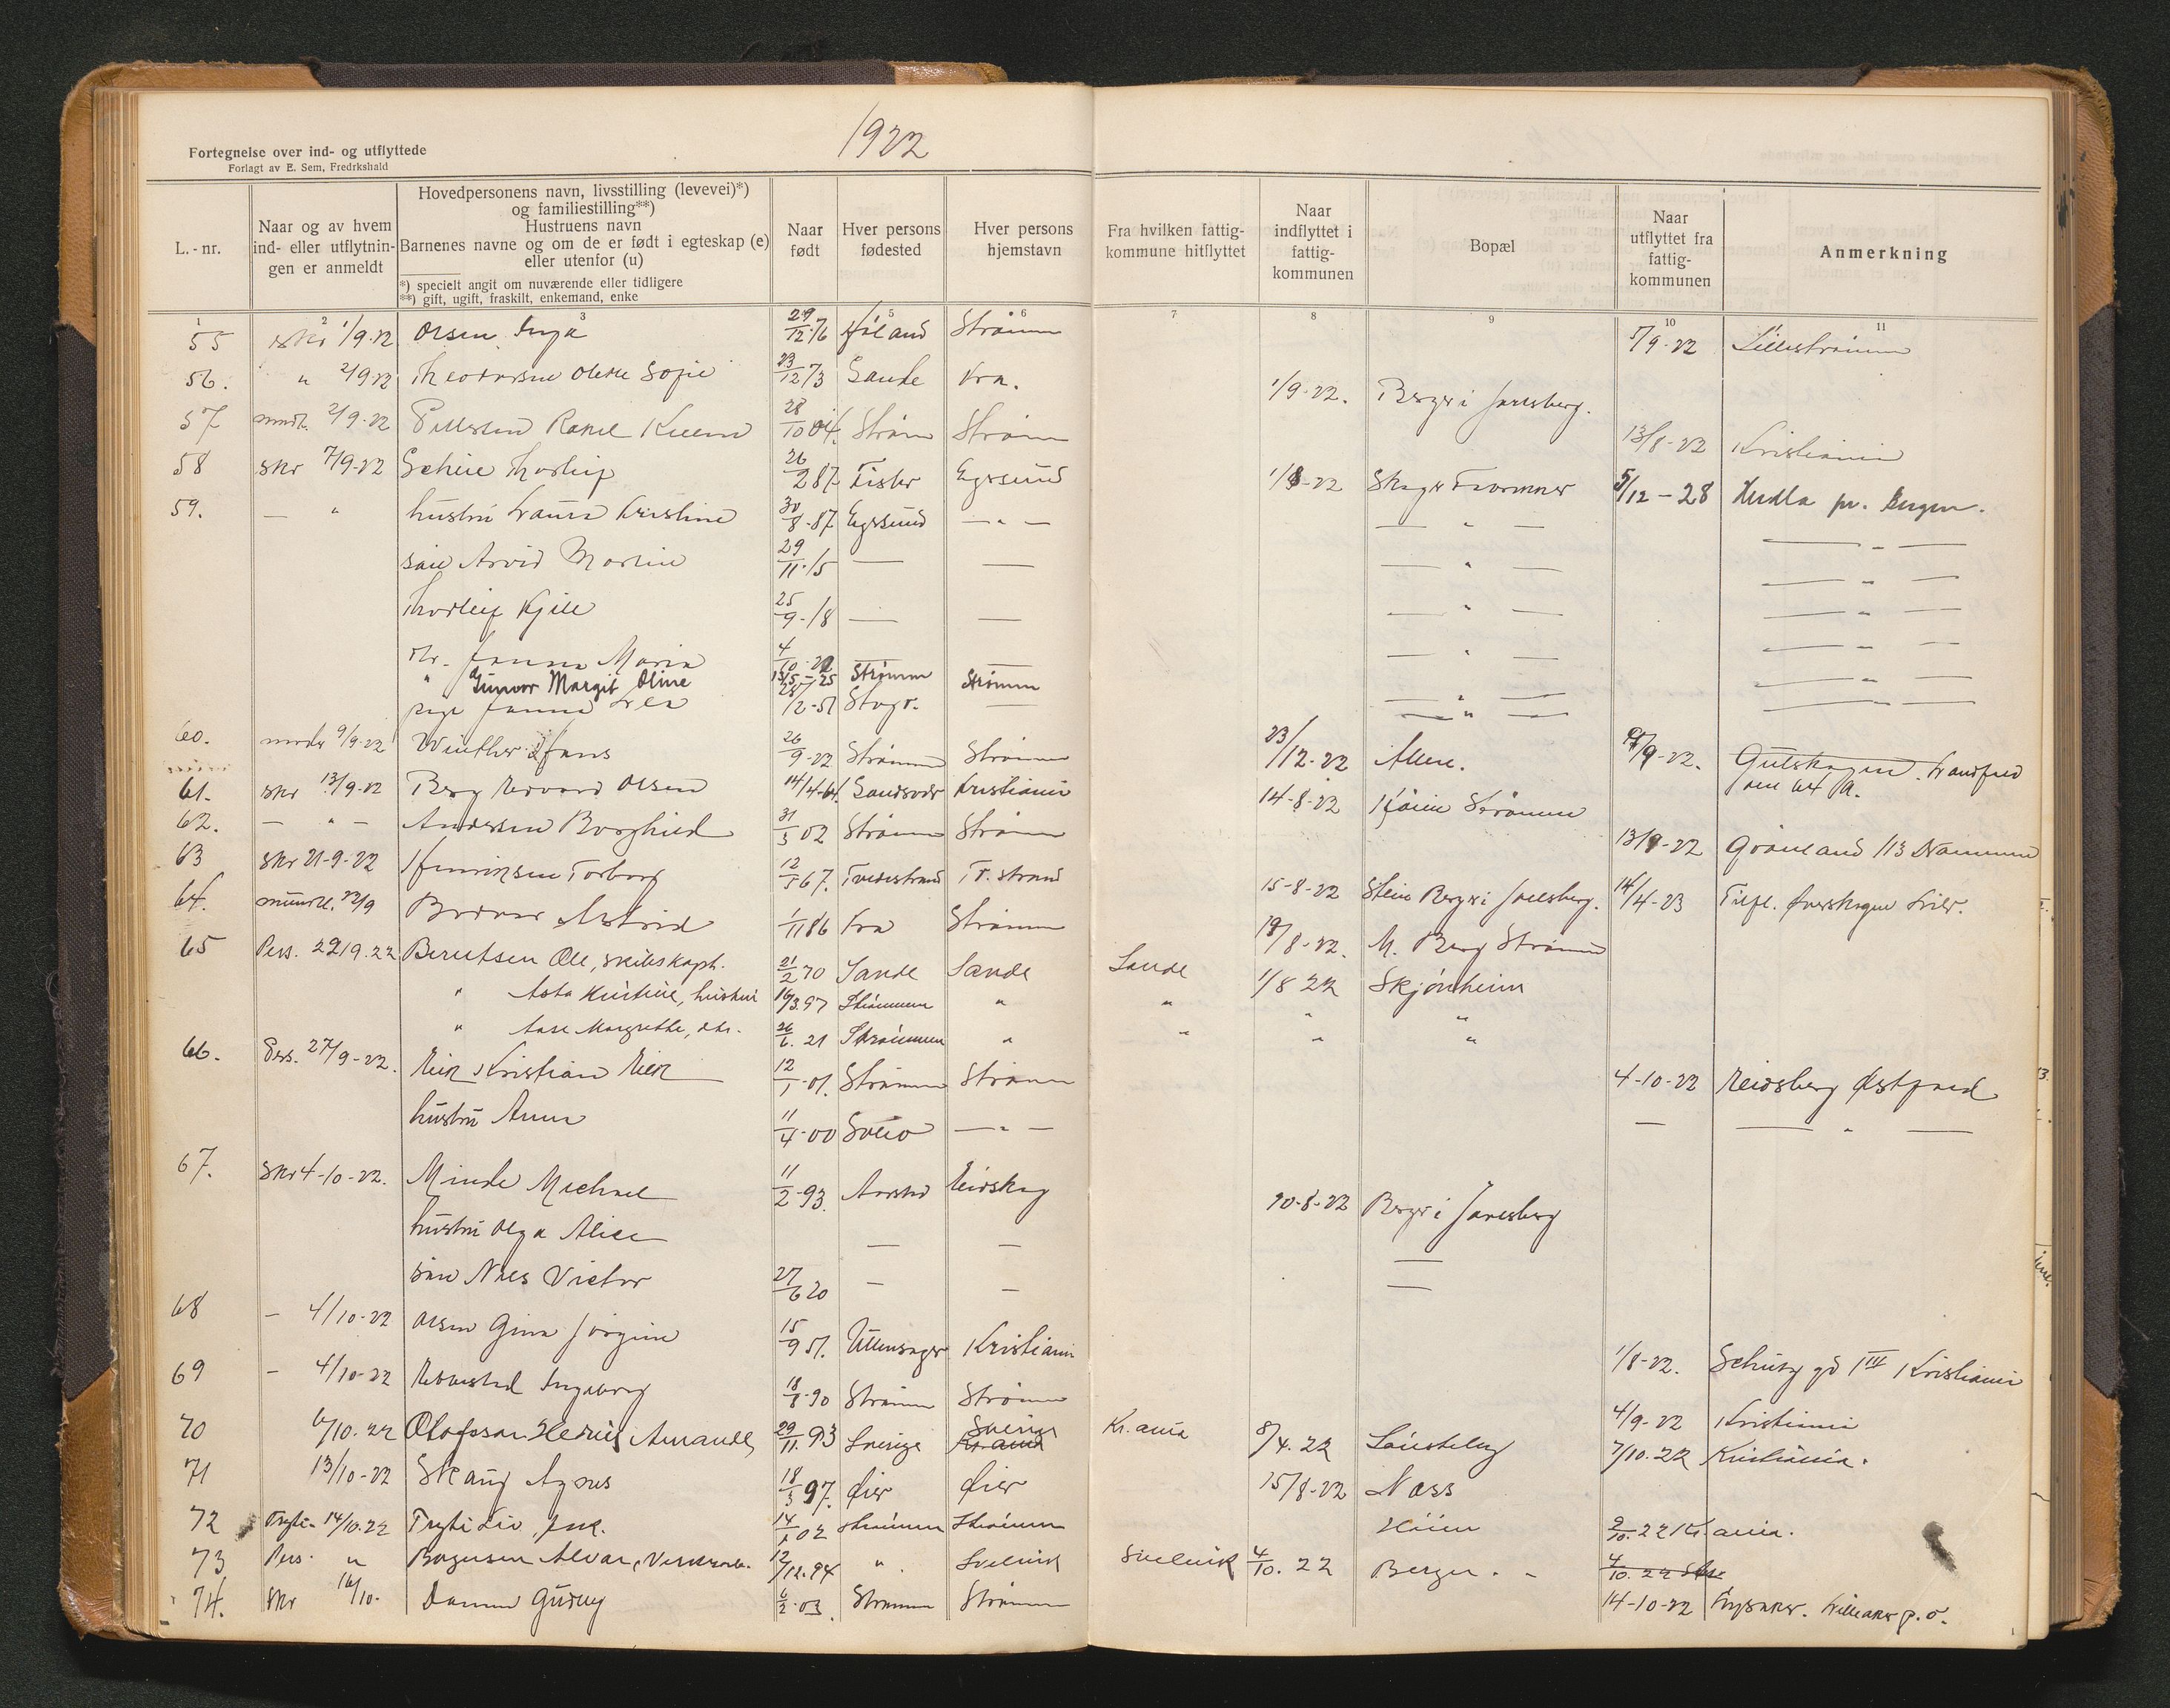 1922
Fortegnelse over ind- og utflyttede
Forlagt av E. Sem, Fredrkshald
L.-nr.
Naar og av hvem
ind- eller utflytnin-
gen er anmeldt
Hovedpersonens navn, livsstilling (levevei)*)
og familiestilling**)
Hustruens navn
Barnenes navne og om de er født i egteskap (e)
eller utenfor (u)
*) specielt angit om nuværende eller tidligere
**) gift, ugift, fraskilt, enkemand, enke
Naar
født
Hver persons
fødested
Hver persons
hjemstavn
Fra hvilken fattig-
kommune hitflyttet
Naar
indflyttet i
fattig-
kommunen
Bopæl
Naar
utflyttet fra
fattig-
kommunen
Anmerkning
1 2 3 5 6 7 8 9 10 11
55 1/9-22 Olsen Inga 29/12-76 Høland Strømm 5/9-22 Lillestrømm
56. " 2/9-22 Theodorsen Sofie 23/12 73 Sande Kra. 1/9-22. Berger i Jarlsberg.
57 mndl. 2/9-22 Pettersen Rakel 28/10 04. Strøm Strøm 13/8-22 Kristiania
58 skr 7/9-22 Scheie Thorleif 26/2 87 Fister Egersund 1/8-22 Skoger 5/12-28 Herdla pr. Bergen.
59. — " hustru Laura Kristine 30/8-87 Egersund —"— —"— —"—
søn Arvid Martin 29/11-15 — — —"— —"—
Thorleif Kjell 25/9-18 — — —"— —"—
dtr. Janna Maria 4/10-22 — — —"— —"—
" Gunvor Margit Oline 15/5-25 Strømm Strømm —"— —"—
pige Janna 28/2-51 — —"—
60. 9/9-22 Winther Hans 26/9-22 Strømm Strømm 23/12-22 9/9-22.
61. skr 13/9-22 Berg Edvard Olsen 14/4-64. Sandsvær Kristiania 14-8-22 Strømm
62. —"— Andersen Borghild 31/5 02 Strømm Strømm 13/9-22 Grønland 113 Drammen
63 skr 21-9-22 Henriksen Torborg 12/5 67. Tvedestrand T. strand 15-8-22 Berger i Jarlsberg. 14/4-23 Lier.
64. mundtl. 22/9 Astrid 1/11 86 Kra Strømm 18/8-22. M. Berg Strømm
65 Pers. 22/9.22 Berntsen Ole, skibskapt. 21/2 70 Sande Sande Sande 1/8 22 Skjønheim
" Asta Kristine, hustru 16/3.97 Strømmen " " " "
" Aase Margrethe, dtr. 26/6. 21 Strømmen " " " "
66. Pers. 27/9-22. Eik Kristian Eik 12/1-01. Strømm Strømm 4-10-22 Eidsberg Østfold
hustru Anna 11/4-00 Svelvik —"— — —"—
67. skr 4-10-22. Minde Michael 11/2-93. Aarstad Eidskog 20-8-22 Berger i Jarlsberg
hustru Olga Alice — — —
søn Nils Victor 27/6 20 — — —
68 — 4/10-22 Olsen Gina Jørgine 15/9 51. Ullensager Kristiania 1/8-22. Schutz gd 1 III Kristiania
69 — 4/10-22 Ingeborg 18/8-90 Strømm Strømm 4/9-22 Kristiania
70 6/10.22 Olofsson Hedvig Amanda 29/11.93 Sverige Sverige Kr.ania Kr.ania 8/4.22 7/10.22 Kristiania.
71 13/10-22 Skaug Agnes 18/3 97. Øier Øier 15/8-22 Næss
72 Tryti- 14/10.22 Tryti Liv, frk. 14/1 02 Strømmen Strømmen 9/10.22 Kr.ania.
73 Pers. " Alvar, 12/12.94 " Svelvik Svelvik 4/10. 22 Berger. - 4/10.22
74. skr 16/10. Gudrun 6/2-03. Strømm Strømm 14-10-22 Lilleaker p.o.